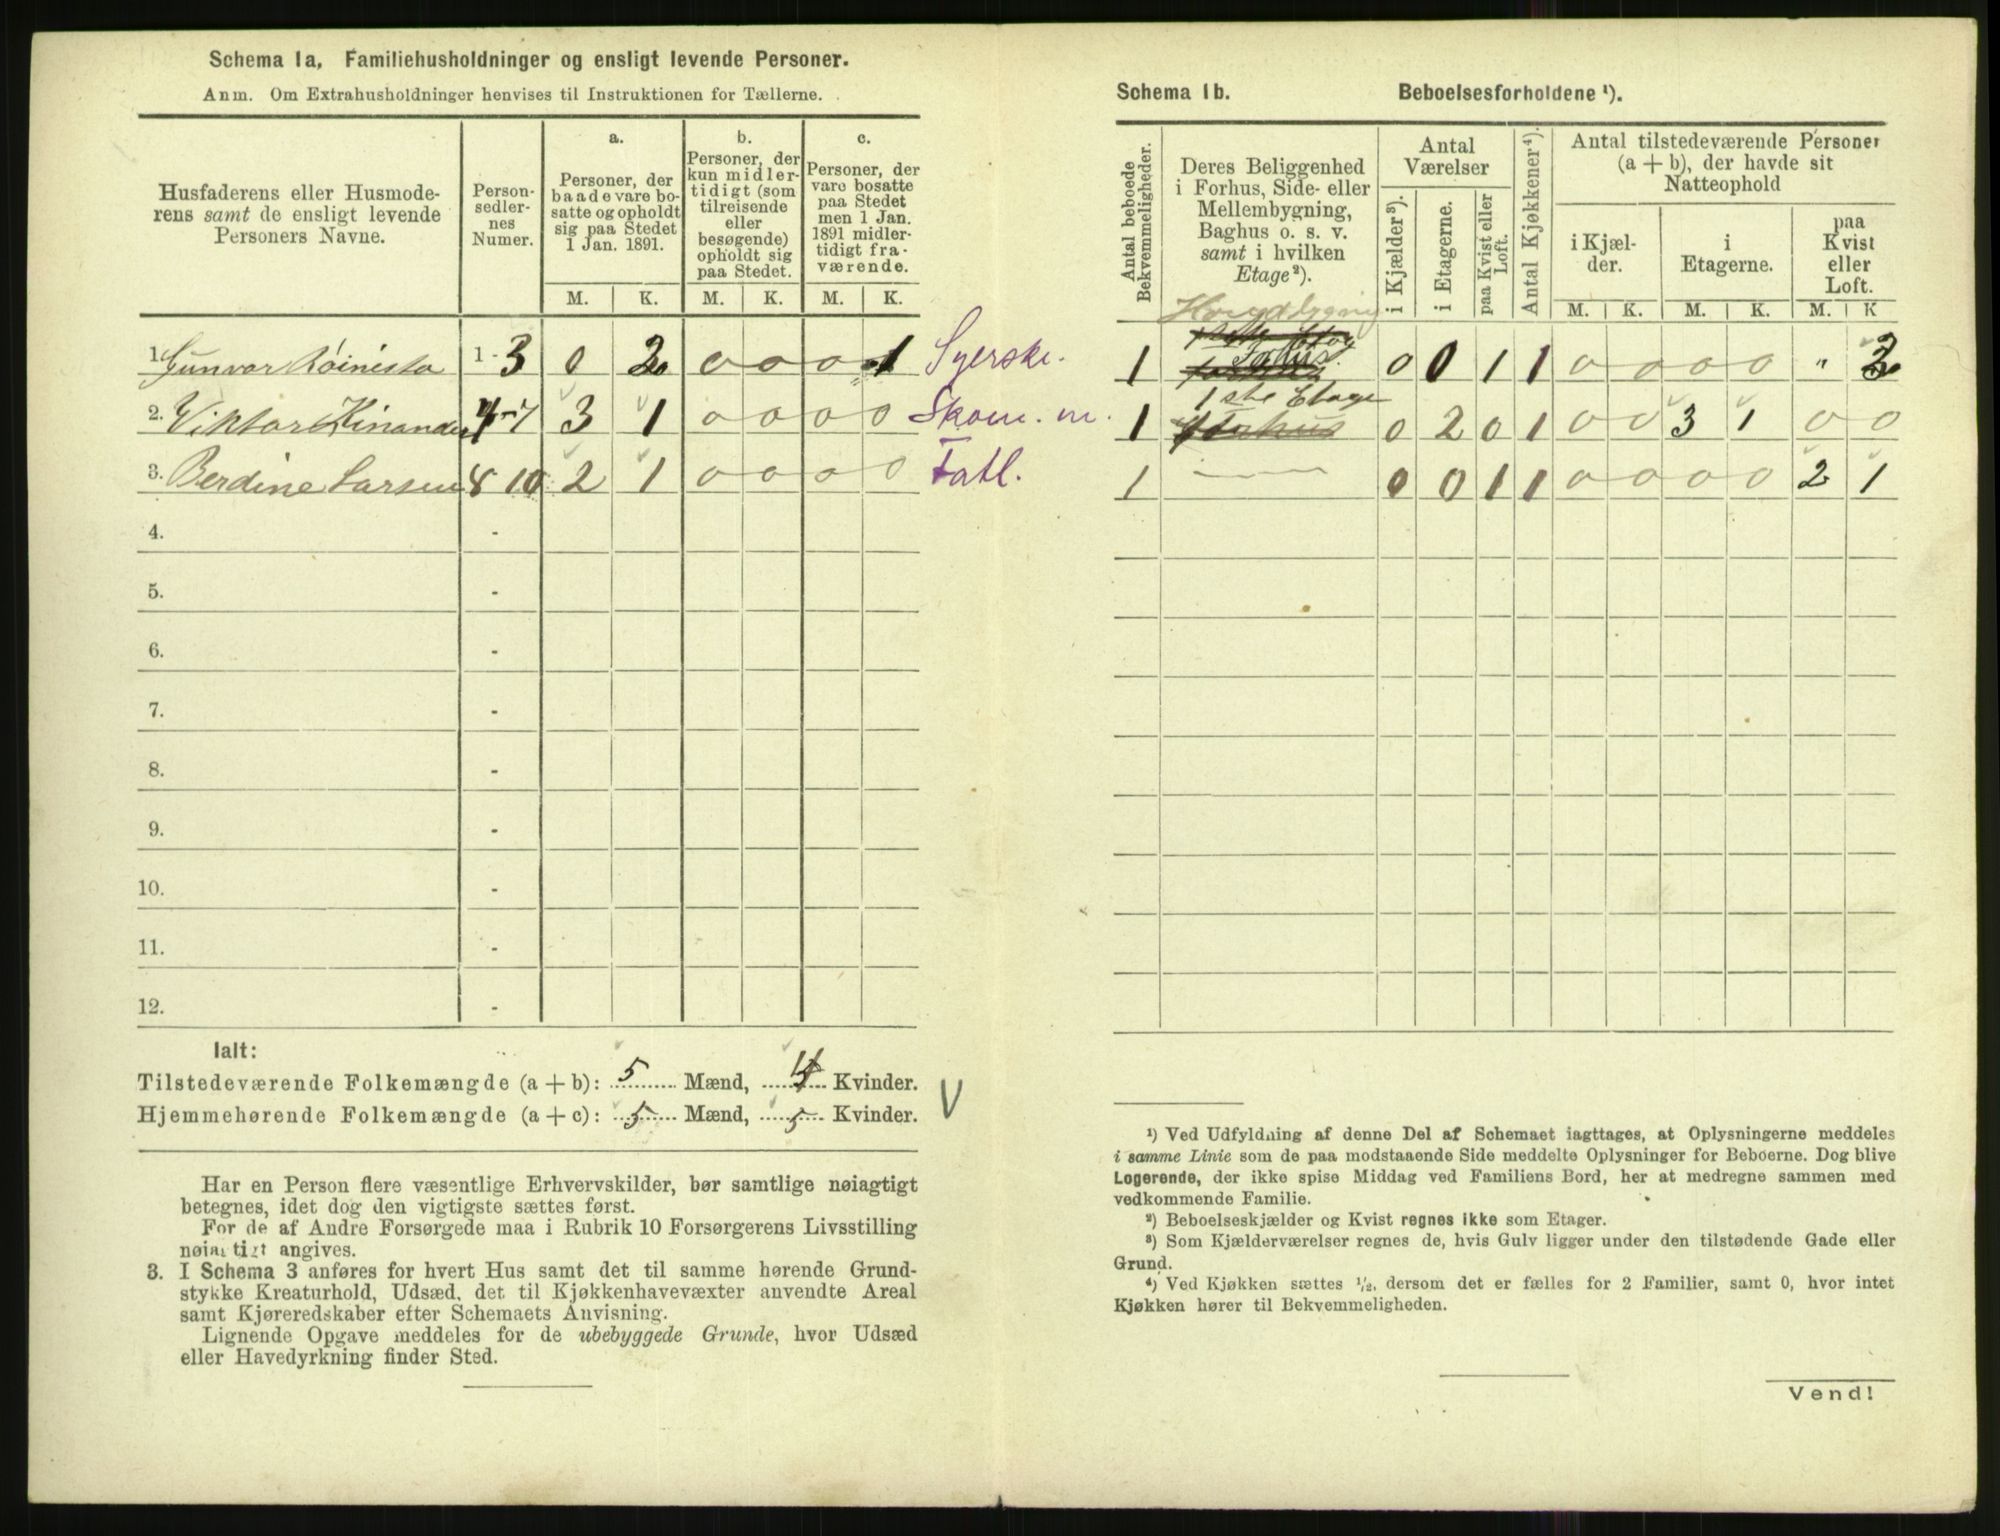 Schema 1a, Familiehusholdninger og ensligt levende Personer.
Anm. Om Extrahusholdninger henvises til Instruktionen for Tællerne.
Husfaderens eller Husmode-
rens samt de ensligt levende
Personers Navne.
Person-
sedler-
nes
Numer.
a.
Personer, der
baade vare bo-
satte og opholdt
sig paa Stedet
1 Jan. 1891.
b.
Personer, der
kun midler-
tidigt (som
tilreisende
eller
besøgende)
opholdt sig
paa Stedet.
c.
Personer, der
vare bosatte
paa Stedet
men 1 Jan.
1891 midler-
tidigt fra-
værende.
M. K. M. K. M. K.
1. Gunvor Röinesta 1 - 3 0 2 0 0 0 1 Syerske.
2. Viktor Kinander 4-7 3 1 0 0 0 0 Skom. m.
3. Berdine Larsen 8 10 2 1 0 0 0 0 Fatl.
4. -
5. -
6. -
7. -
8. -
9. -
10. -
11. -
12. -
Ialt:
Tilstedeværende Folkemængde (a + b): 5 Mænd, 4 Kvinder.
Hjemmehørende Folkemængde (a + c): 5 Mænd, 5 Kvinder.
V
Har en Person flere væsentlige Erhvervskilder, bør samtlige nøiagtigt
betegnes, idet dog den vigtigste sættes først.
For de af Andre Forsørgede maa i Rubrik 10 Forsørgerens Livsstilling
nøiagtigt angives.
3. I Schema 3 anføres for hvert Hus samt det til samme hørende Grund-
stykke Kreaturhold, Udsæd, det til Kjøkkenhavevæxter anvendte Areal
samt Kjøreredskaber efter Schemaets Anvisning.
Lignende Opgave meddeles for de ubebyggede Grunde, hvor Udsæd
eller Havedyrkning finder Sted.
Schema 1b. Beboelsesforholdene ¹).
Antal beboede
Bekvemmeligheder.
Deres Beliggenhed
i Forhus, Side- eller
Mellembygning,
Baghus o. s. v.
samt i hvilken
Etage²).
Antal
Værelser
i Kjælder³).
i Etagerne.
paa Kvist eller
Loft.
Antal Kjøkkener⁴).
Antal tilstedeværende Personer
(a + b), der havde sit
Natteophold
i Kjæl-
der.
i
Etagerne.
paa
Kvist
eller
Loft.
M. K. M. K. M. K
Hovedbygning
1 Forhus 0 0 1 1 0 0 0 0 " 2
1ste Etage
1 Forhus 0 2 0 1 0 0 3 1 0 0
1 — — 0 0 1 1 0 0 0 0 2 1
¹) Ved Udfyldning af denne Del af Schemaet iagttages, at Oplysningerne meddeles
i samme Linie som de paa modstaaende Side meddelte Oplysninger for Beboerne. Dog blive
Logerende, der ikke spise Middag ved Familiens Bord, her at medregne sammen med
vedkommende Familie.
²) Beboelseskjælder og Kvist regnes ikke som Etager.
³) Som Kjælderværelser regnes de, hvis Gulv ligger under den tilstødende Gade eller
Grund.
⁴) Ved Kjøkken sættes ½, dersom det er fælles for 2 Familier, samt 0, hvor intet
Kjøkken hører til Bekvemmeligheden.
Vend!